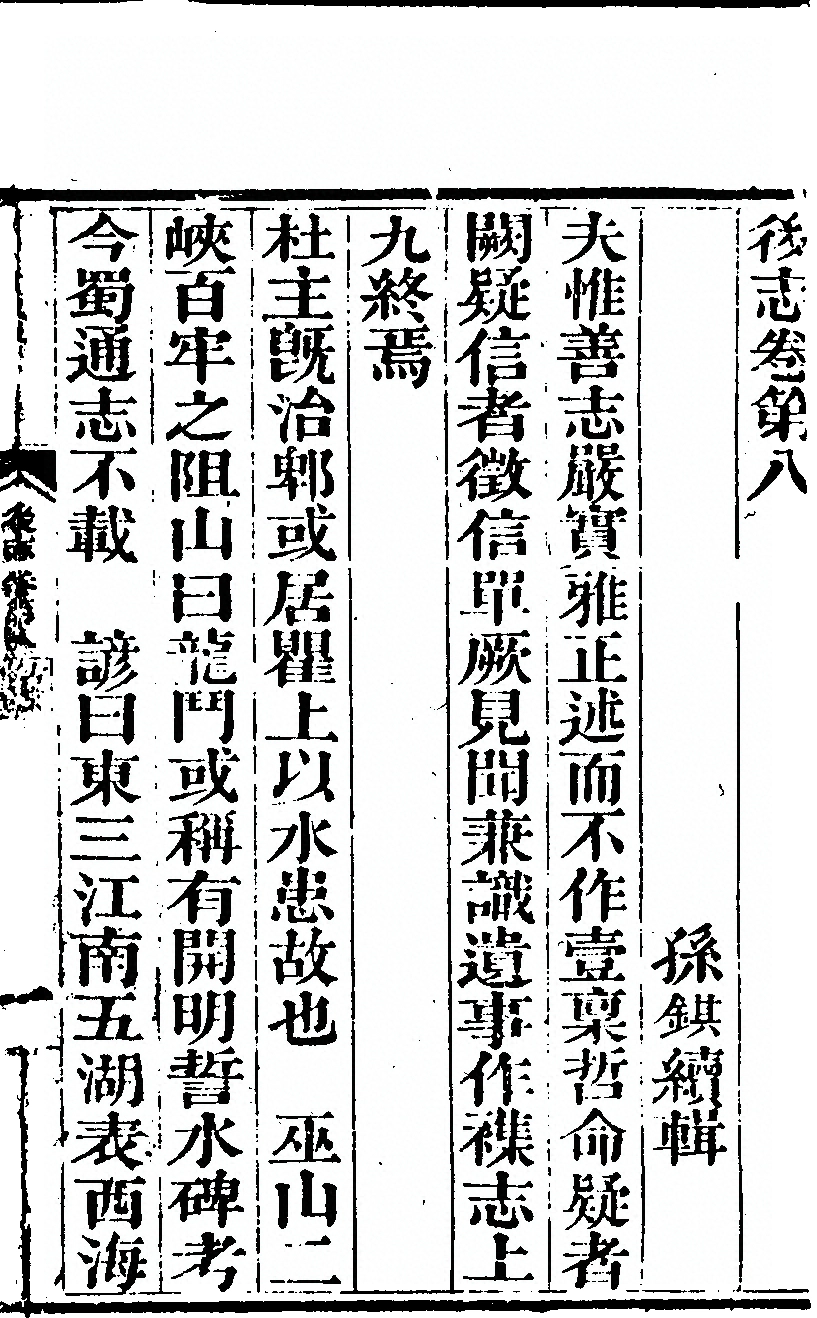 後志卷第八
孫錤續輯
夫惟善志嚴實雅正述而不作壹稟哲命疑者
闕疑信者徵信單厥見聞兼識遺事作襍志上
九終焉
杜主旣治郫或居瞿上以水患故也　巫山二
峽百牢之阻山曰龍門或稱有開明誓水碑考
今蜀通志不載　諺曰東三江南五湖表西海
一